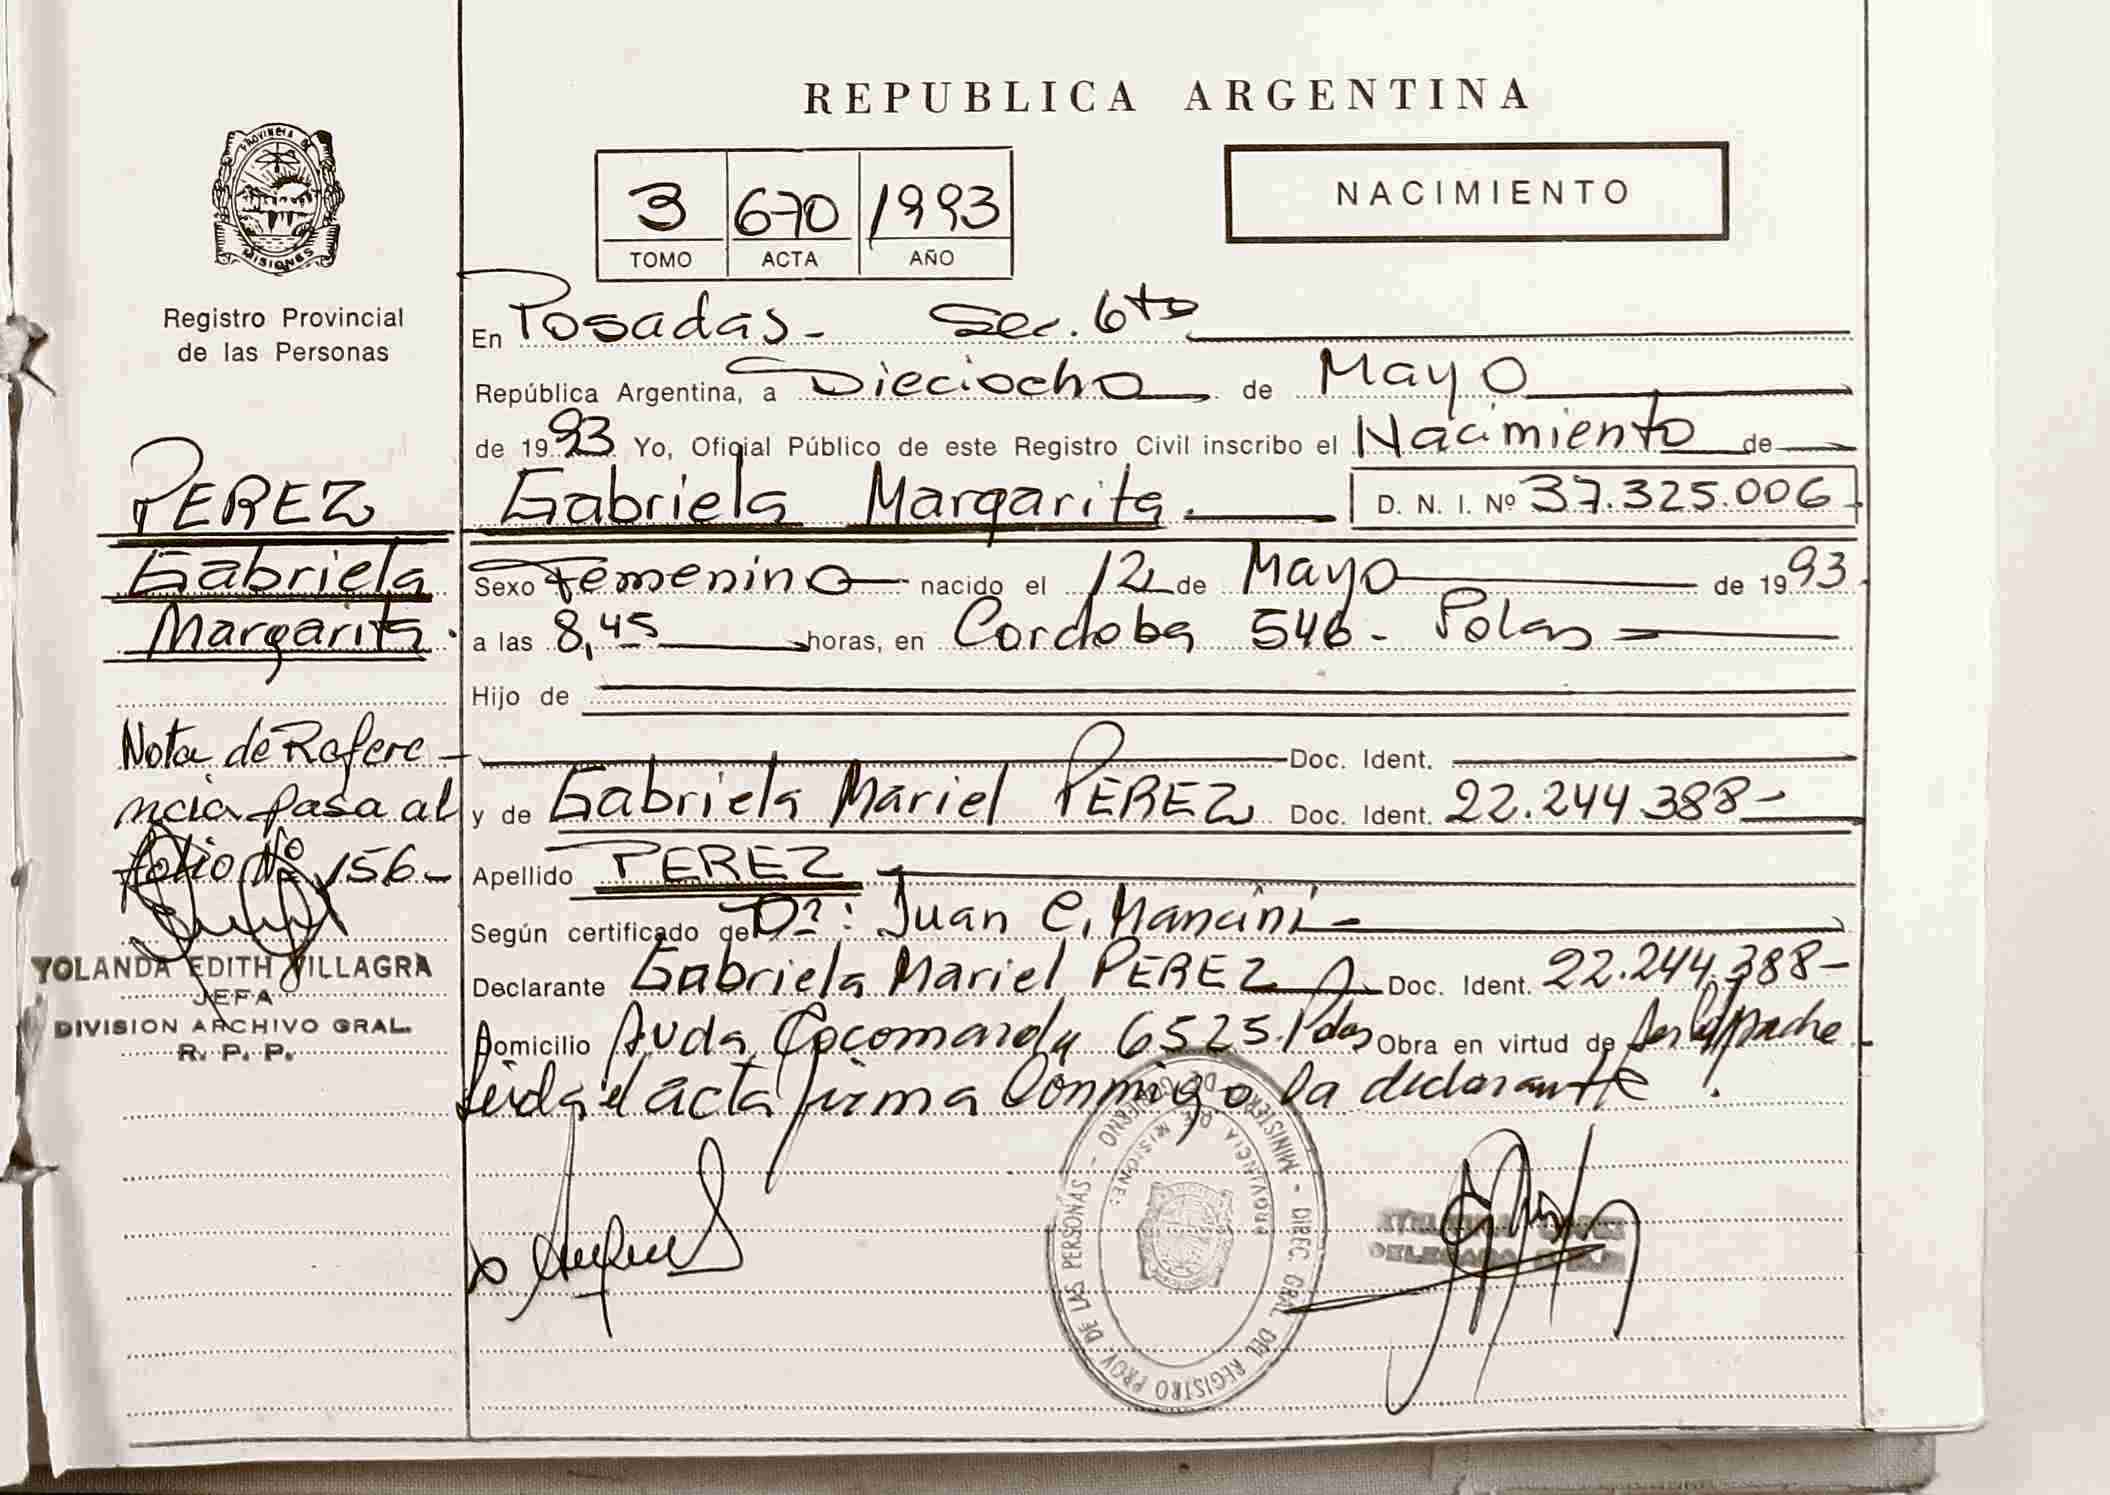 REPUBLICA ARGENTINA
PROVINCIA DE
MISIONES
Registro Provincial
de las Personas
3 670 1993
TOMO ACTA AÑO
NACIMIENTO
En Posadas - Sec. 6ta
República Argentina, a Dieciocho de Mayo
de 1993 Yo, Oficial Público de este Registro Civil inscribo el Nacimiento de
Gabriela Margarita. D. N. I. Nº 37.325.006
Sexo Femenino nacido el 12 de Mayo de 1993
a las 8,45 horas, en Cordoba 546 - Pdas
Hijo de
Doc. Ident.
y de Gabriela Mariel PEREZ Doc. Ident. 22.244.388-
Apellido PEREZ
Según certificado de Dr: Juan C. Mancini -
Declarante Gabriela Mariel PEREZ Doc. Ident. 22.244.388-
Domicilio Avda Cocomarola 6525. Pdas Obra en virtud de ser la Madre
Leida el acta firma conmigo la declarante.
PEREZ
Gabriela
Margarita.
Nota de Refere-
ncia pasa al
folio Nº 156-
YOLANDA EDITH VILLAGRA
JEFA
DIVISION ARCHIVO GRAL.
R. P. P.
MINISTERIO DE GOBIERNO - DIREC. GRAL. DEL REGISTRO PROV. DE LAS PERSONAS -
PROVINCIA DE MISIONES